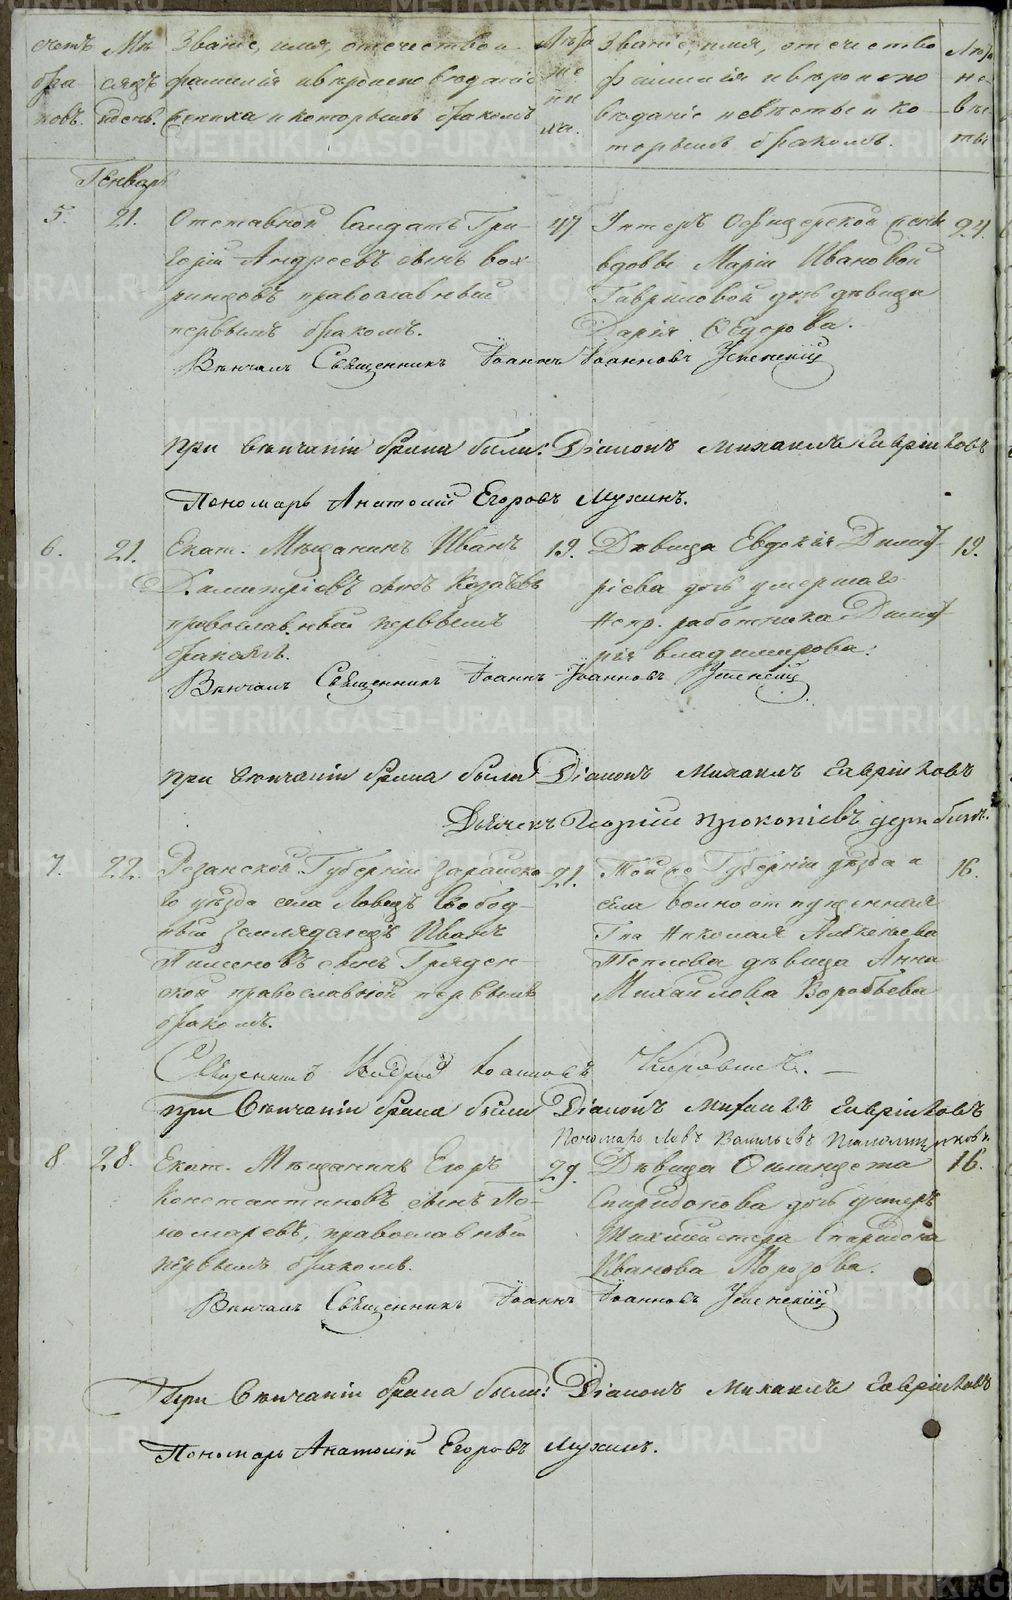 счетъ бра ковъ.
Мѣ сяцъ и день.
Званіе, имя, отчество и
фамилія и вѣроисповѣданіе
жениха и которымъ бракомъ
Лѣта же ни ха.
Званіе, имя, отчество
фамилія и вѣроиспо
вѣданіе невѣсты и ко-
торымъ бракомъ.
Лѣта не вѣс ты
Генварь
5. 21. Отставной Солдатъ Гри-
горій Андреевъ сынъ Вах
рин
православный
первымъ бракомъ.
47
Унтеръ Офицерской жены
вдовы Маріи Ивановой
Гавриловой дочь дѣвица
Дарія Ѳедорова.
24.
Вѣнчалъ Священникъ Іоаннъ Іоанновъ Успенскій
При вѣнчаніи брака были: Діаконъ Михаилъ Гавриловъ
Пономарь Анатолій Егоровъ Мухинъ.
6. 21. Екат. Мѣщанинъ Иванъ
Димитріевъ сынъ Казаевъ
православный первымъ
бракомъ.
19.
Дѣвица Евдокія Димит
ріева дочь умершаго
Непр. работника Димит
рія Владимирова.
19.
Вѣнчалъ Священникъ Іоаннъ Іоанновъ Успенскій
При вѣнчаніи брака были Діаконъ Михаилъ Гавриловъ
Дьячекъ Георгій Прокопіевъ
7. 22. Рязанской Губерніи Зарайска
го уѣзда села Ловецъ Свобод-
ный Землядѣлецъ Иванъ
Пименовъ сынъ
православной первымъ
бракомъ.
21.
Той же Губерніи уѣзда и
села вольноотпущенная
Гна Николая Алексѣева
Теплова дѣвица Анна
Михайлова Воробьева
16.
Священникъ Андрей Іоанновъ
При вѣнчаніи брака были Діаконъ Михаилъ Гавриловъ
Пономарь Левъ Васильевъ
8 28. Екат. Мѣщанинъ Егоръ
Константиновъ сынъ По-
номаревъ, православный
первымъ бракомъ.
29.
Дѣвица
Спиридонова дочь Унтеръ
Шихмейстера Спиридона
Иванова Морозова.
16.
Вѣнчалъ Священникъ Іоаннъ Іоанновъ Успенскій
При вѣнчаніи брака были: Діаконъ Михаилъ Гавриловъ
Пономарь Анатолій Егоровъ Мухинъ.
METRIKI.GASO-URAL.RU